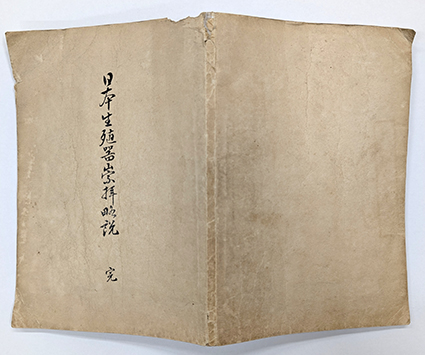 日本生殖器崇拝略説 完